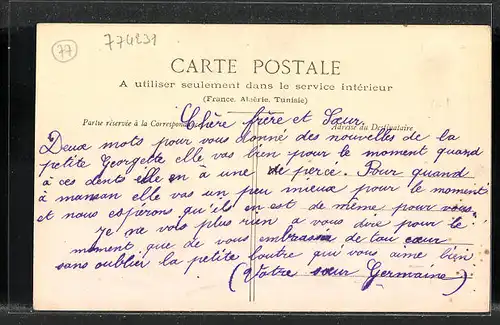 77
774231
CARTE POSTALE
A utiliser seulement dans le service intérieur
(France, Algérie, Tunisie)
Partie réservée à la Correspondance
Adresse du Destinataire
Chère frère et Sœur,
Deux mots pour vous donné des nouvelles de la
petite Georgette elle vas bien pour le moment quand
à ces dents elle en à une de perce. Pour quand
à maman elle vas un peu mieux pour le moment
et nous espérons qu'ils en est de même pour vous.
Je ne vois plus rien a vous dire pour le
moment que de vous embrassé de tou cœur
sans oublier la petite loutre qui vous aime bien
(Votre sœur Germaine)